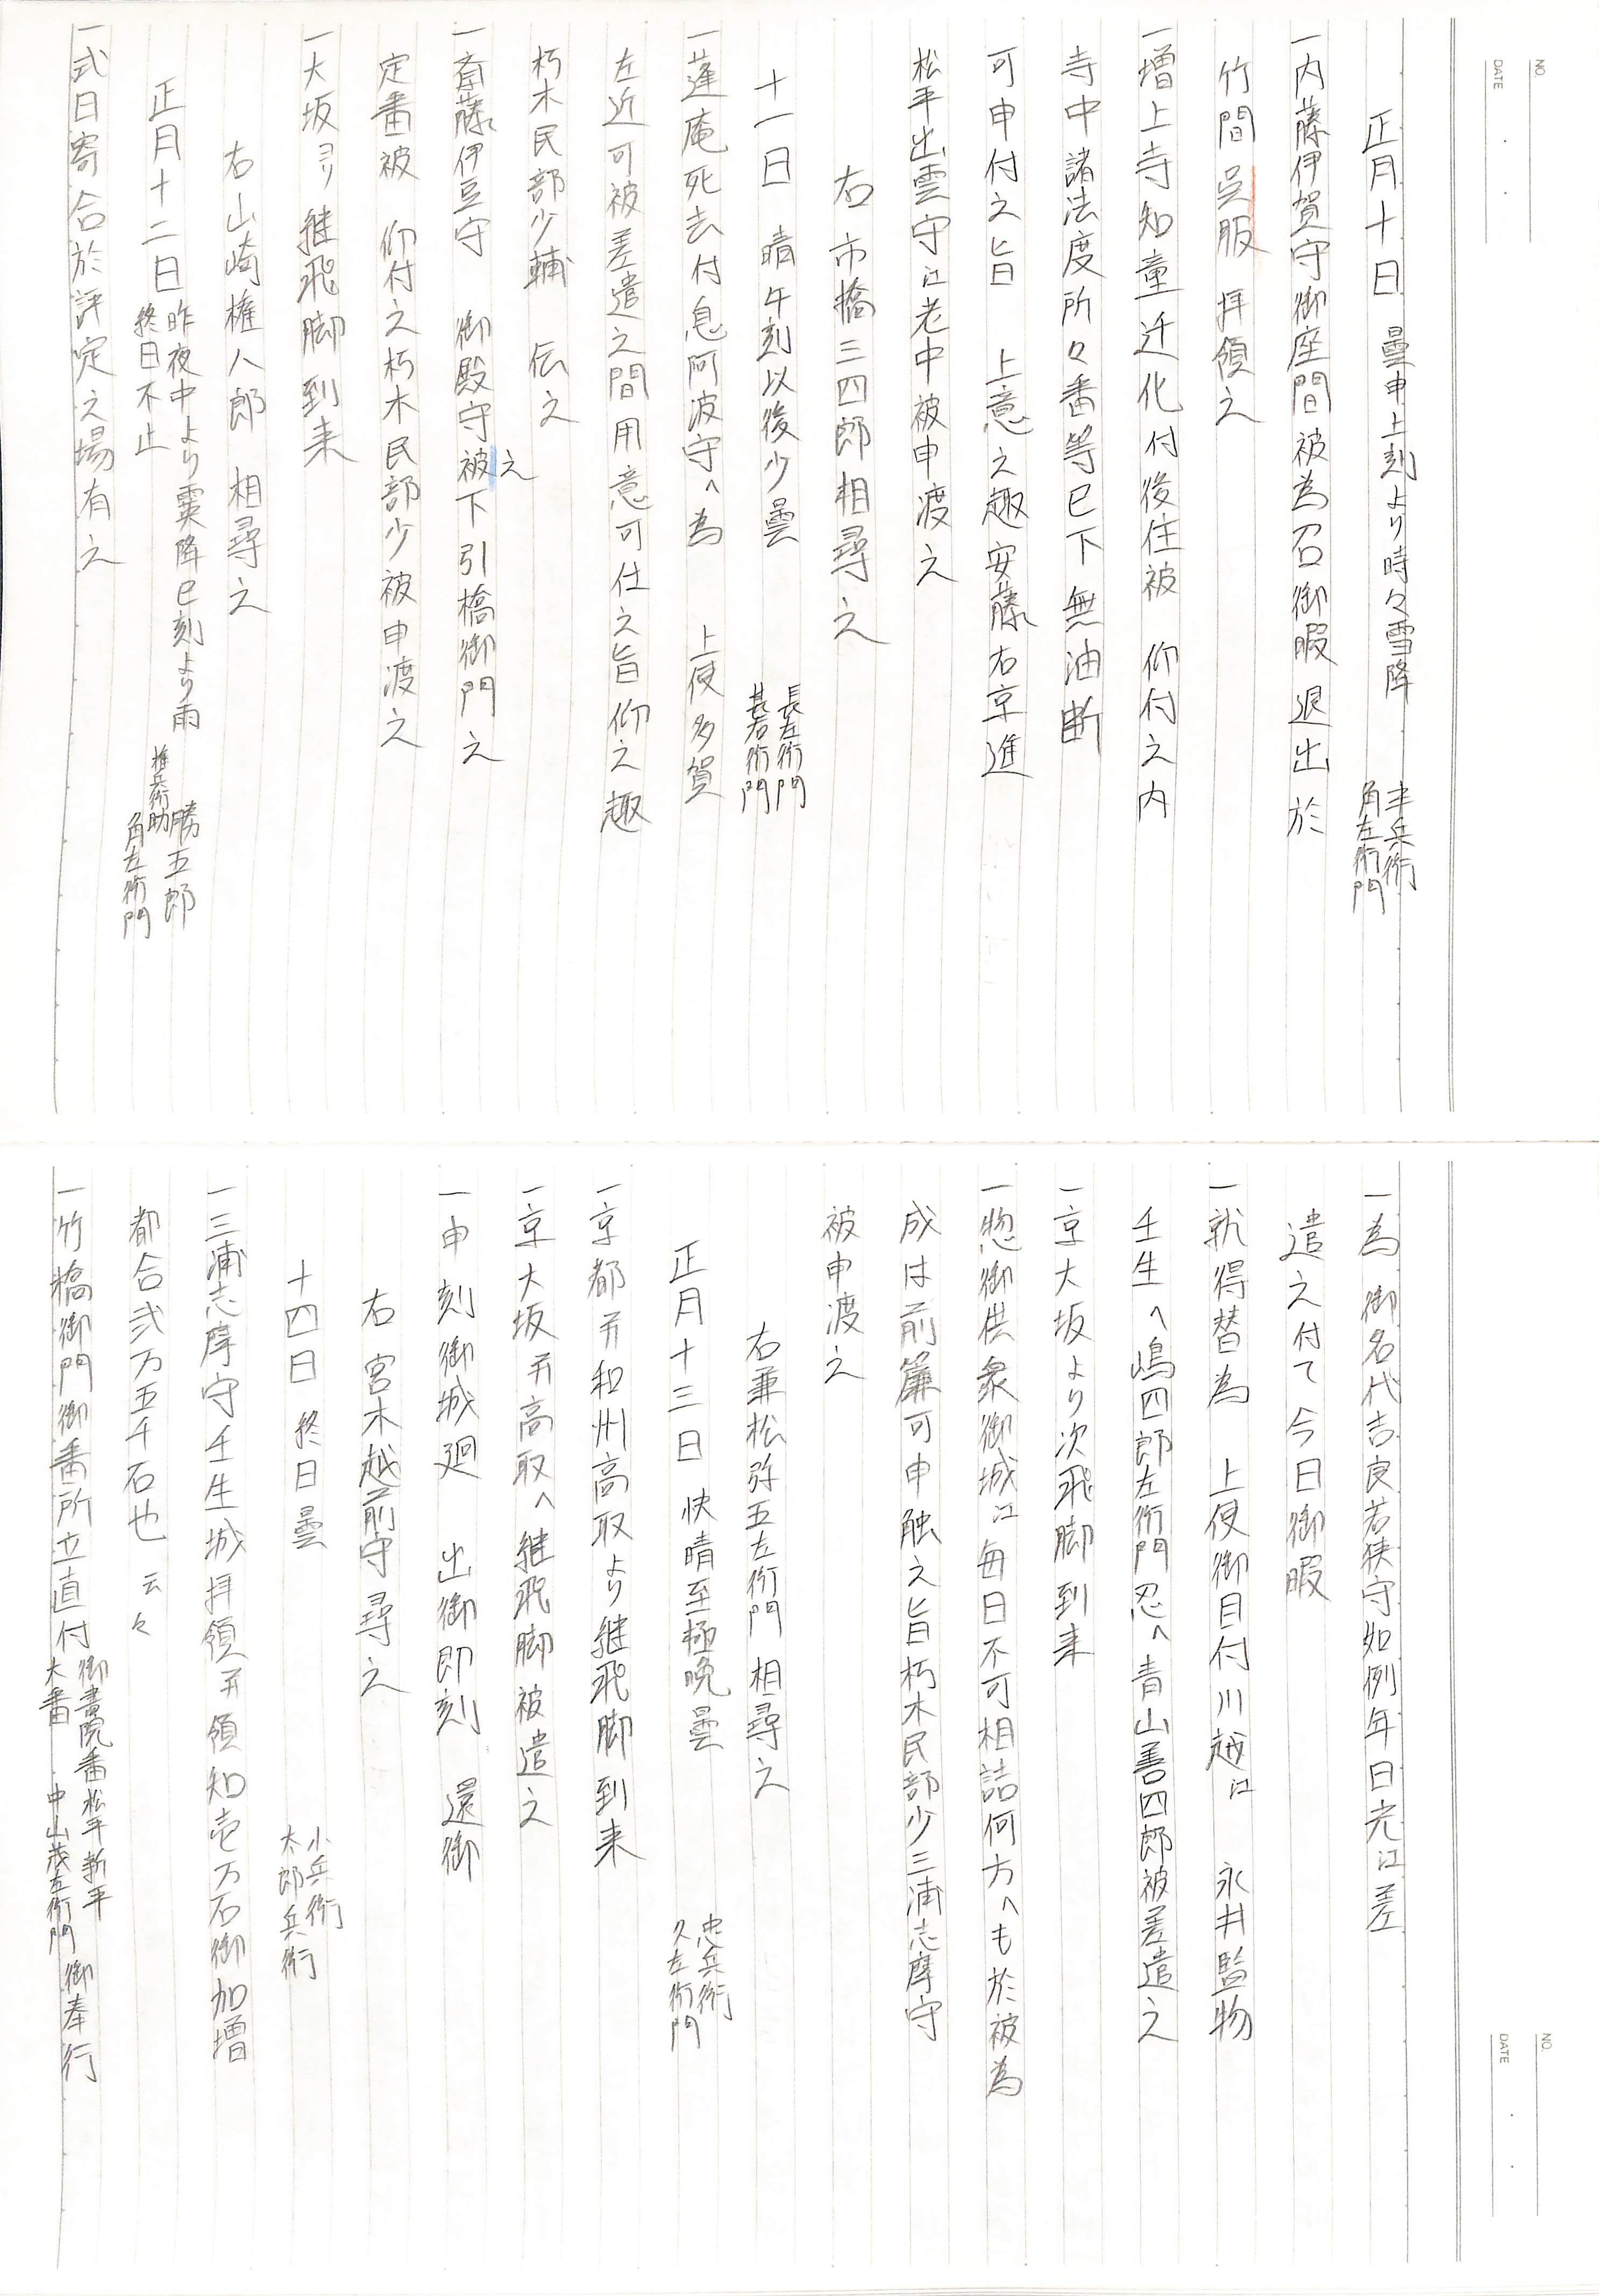 NO.
DATE
正月十日 曇申上刻より時々雪降 半兵衛 角左衛門
一内藤伊賀守御座間被為召御暇退出於
竹間呉服 拝領之
一増上寺知童迁化付後住被 仰付之内
寺中諸法度所々番等已下無油断
可申付之旨 上意之趣安藤右京進
松平出雲守江老中被申渡之
右市橋三四郎相尋之
十一日 晴午刻以後少曇 長左衛門 甚右衛門
一蓬庵死去付息阿波守へ為 上使多賀
左近可被差遣之間用意可仕之旨仰之趣
朽木民部少輔 伝之
一斎藤伊豆守 御殿守被下引橋御門之
之
定番被 仰付之朽木民部少被申渡之
一大坂ヨリ継飛脚到来
右山崎権八郎 相尋之
正月十二日 昨夜中より霙降巳刻より雨 終日不止 勝五郎 権兵衛助 角左衛門
一式日寄合於評定之場有之
NO.
DATE
一為 御名代吉良若狭守如例年日光江差
遣之付て今日御暇
一就得替為 上使御目付川越江 永井監物
壬生へ嶋四郎左衛門忍へ青山善四郎被差遣之
一京大坂より次飛脚到来
一惣御供衆御城江毎日不可相詰何方へも於被為
成は前簾可申触之旨朽木民部少三浦志摩守
被申渡之
右兼松弥五左衛門相尋之
正月十三日 快晴至極晩曇 忠兵衛 久左衛門
一京都并和州高取より継飛脚到来
一京大坂并高取へ継飛脚被遣之
一申刻御城廻 出御即刻 還御
右宮木越前守尋之
十四日 終日曇 小兵衛 太郎兵衛
一三浦志摩守壬生城拝領并領知壱万石御加増
都合弐万五千石也 云々
一竹橋御門御番所立直付 御書院番松平新平 大番 中山茂左衛門 御奉行